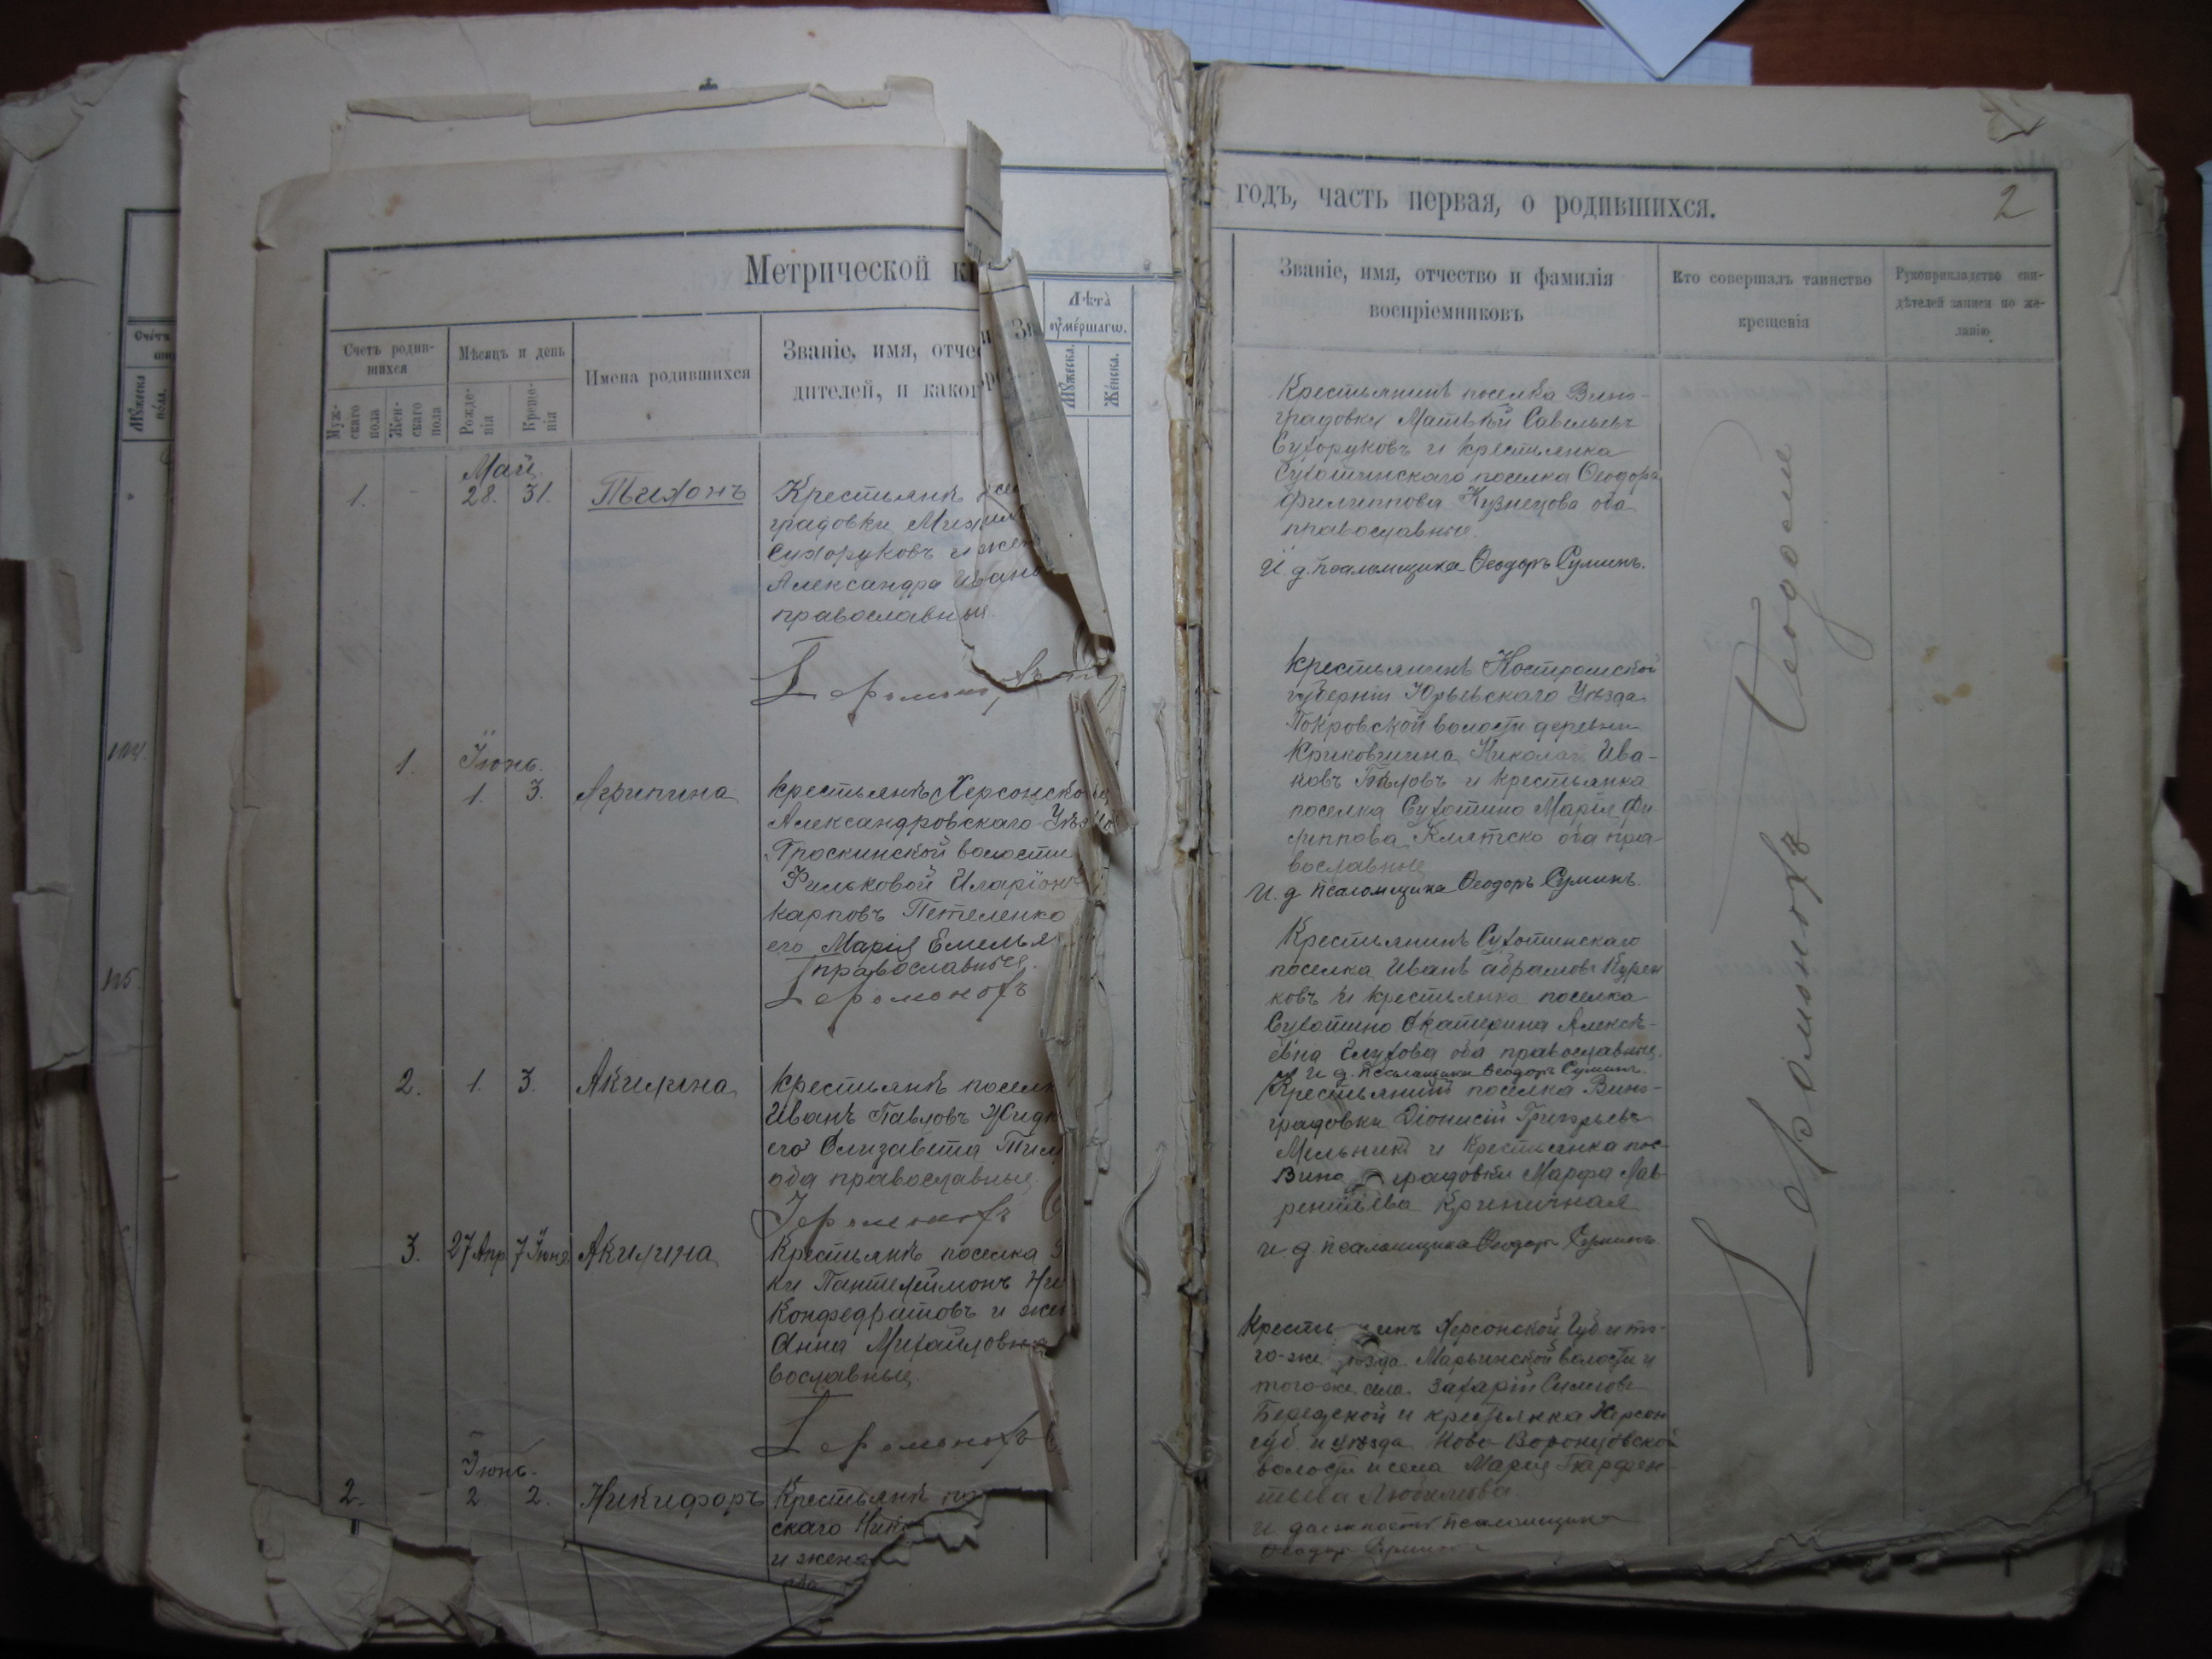 Метрической кн
Счетъ родив-
шихся
Муж-
скаго
пола
Жен-
скаго
пола
Мѣсяцъ и день
Рожде-
нія
Креще-
нія
Имена родившихся
Званіе, имя, отче
дителей, и како
Май
1. - 28. 31. Тихонъ
Крестьянинъ
градовки Михаил
Сухоруковъ и жен
Александра Ивано
православные.
Іеромонахъ
Іюнь.
1. 1. 3. Агрипина
Крестьянинъ Херсонско
Александровскаго Уѣз
Проскинской волости
Фильковой Иларіонъ
Карповъ Петеленко
его Марія Емелья
православные.
Іеромонахъ
2. 1. 3. Акилина
Крестьянинъ поселк
Иванъ Павловъ Жидк
его Елизавета Тим
оба православные.
Іеромонахъ
3. 27 Апр 7 Іюня Акилина
Крестьянинъ поселка
ки Пантелеймонъ Ни
Конфедратовъ и жен
Анна Михайловна
вославные.
Іеромонахъ
Іюнь.
2. - 2 2. Никифоръ
Крестьянинъ по
скаго Ник
и жена
Лѣта
оумершагѡ.
Мꙋжеска.
Женска.
годъ, часть первая, о родившихся.
2
Званіе, имя, отчество и фамилія
воспріемниковъ
Кто совершалъ таинство
крещенія
Рукоприкладство сви-
дѣтелей записи по же-
ланію.
Крестьянинъ поселка Вино-
градовки Матвѣй Савельевъ
Сухоруковъ и крестьянка
Сухотинскаго поселка Ѳеодора
Филиппова Кузнецова оба
православные.
И. д. псаломщика Ѳеодоръ Суминъ.
Крестьянинъ Костромской
губерніи Юрьевскаго Уѣзда
Покровской волости деревни
Николай Ива-
новъ Бѣловъ и крестьянка
поселка Сухотино Марія Фи
липпова Клятско оба пра-
вославные
И. д псаломщика Ѳеодоръ Суминъ.
Крестьянинъ Сухотинскаго
поселка Иванъ Абрамовъ Курен
ковъ и крестьянка поселка
Сухотино Екатерина Алексѣ-
евна Глухова оба православные.
И. д. псаломщика Ѳеодоръ Суминъ.
Крестьянинъ поселка Вино-
градовки Діонисій Григорьевъ
Мельникъ и Крестьянка пос-
Вино градовки Марфа Лав-
рентьева Криничная
И. д. псаломщика Ѳеодоръ Суминъ.
Кресть янинъ Херсонской Губ и то-
го-же уѣзда Марьинской волости и
тогоже села Захарій Симовъ
Бередской и крестьянка Херсон
губ. и уѣзда Ново-Воронцовской
волости и села Марія Парфен-
тьева Любимова
И. должность псаломщика
Ѳеодоръ Суминъ
Іеромонахъ Ѳеодосій